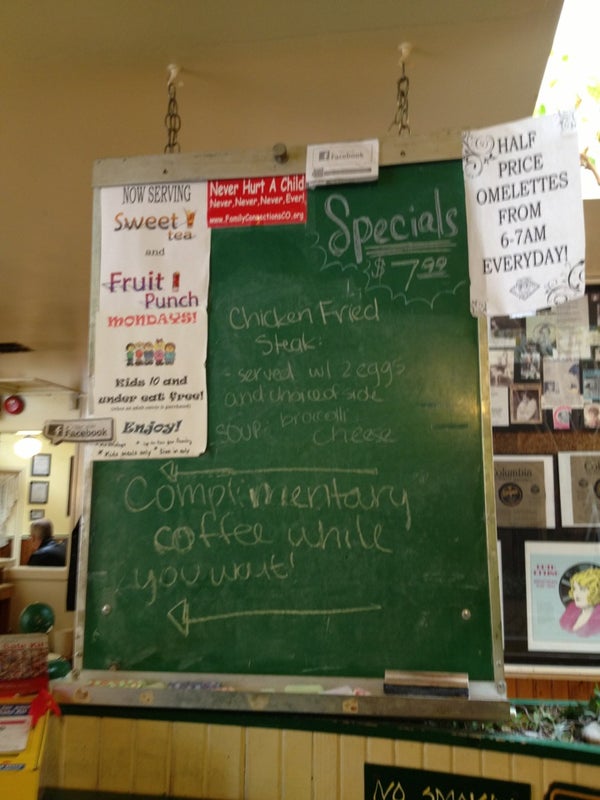 NOW SERVING
Sweet
tea
and
Fruit
Punch
MONDAYS!
Kids 10 and
under eat free!
Enjoy!
* Kids meals only * Dine in only
Facebook
Never Hurt A Child
Never, Never, Never, Ever!
www.FamilyConnectionsCO.org
Facebook
HALF
PRICE
OMELETTES
FROM
6-7AM
EVERYDAY!
Specials
$ 7.99
Chicken Fried
Steak:
- served w/ 2 eggs
and choice of side
SOUP: brocolli
cheese
Complimentary
coffee while
you wait!
Columbia
NO SMOKING